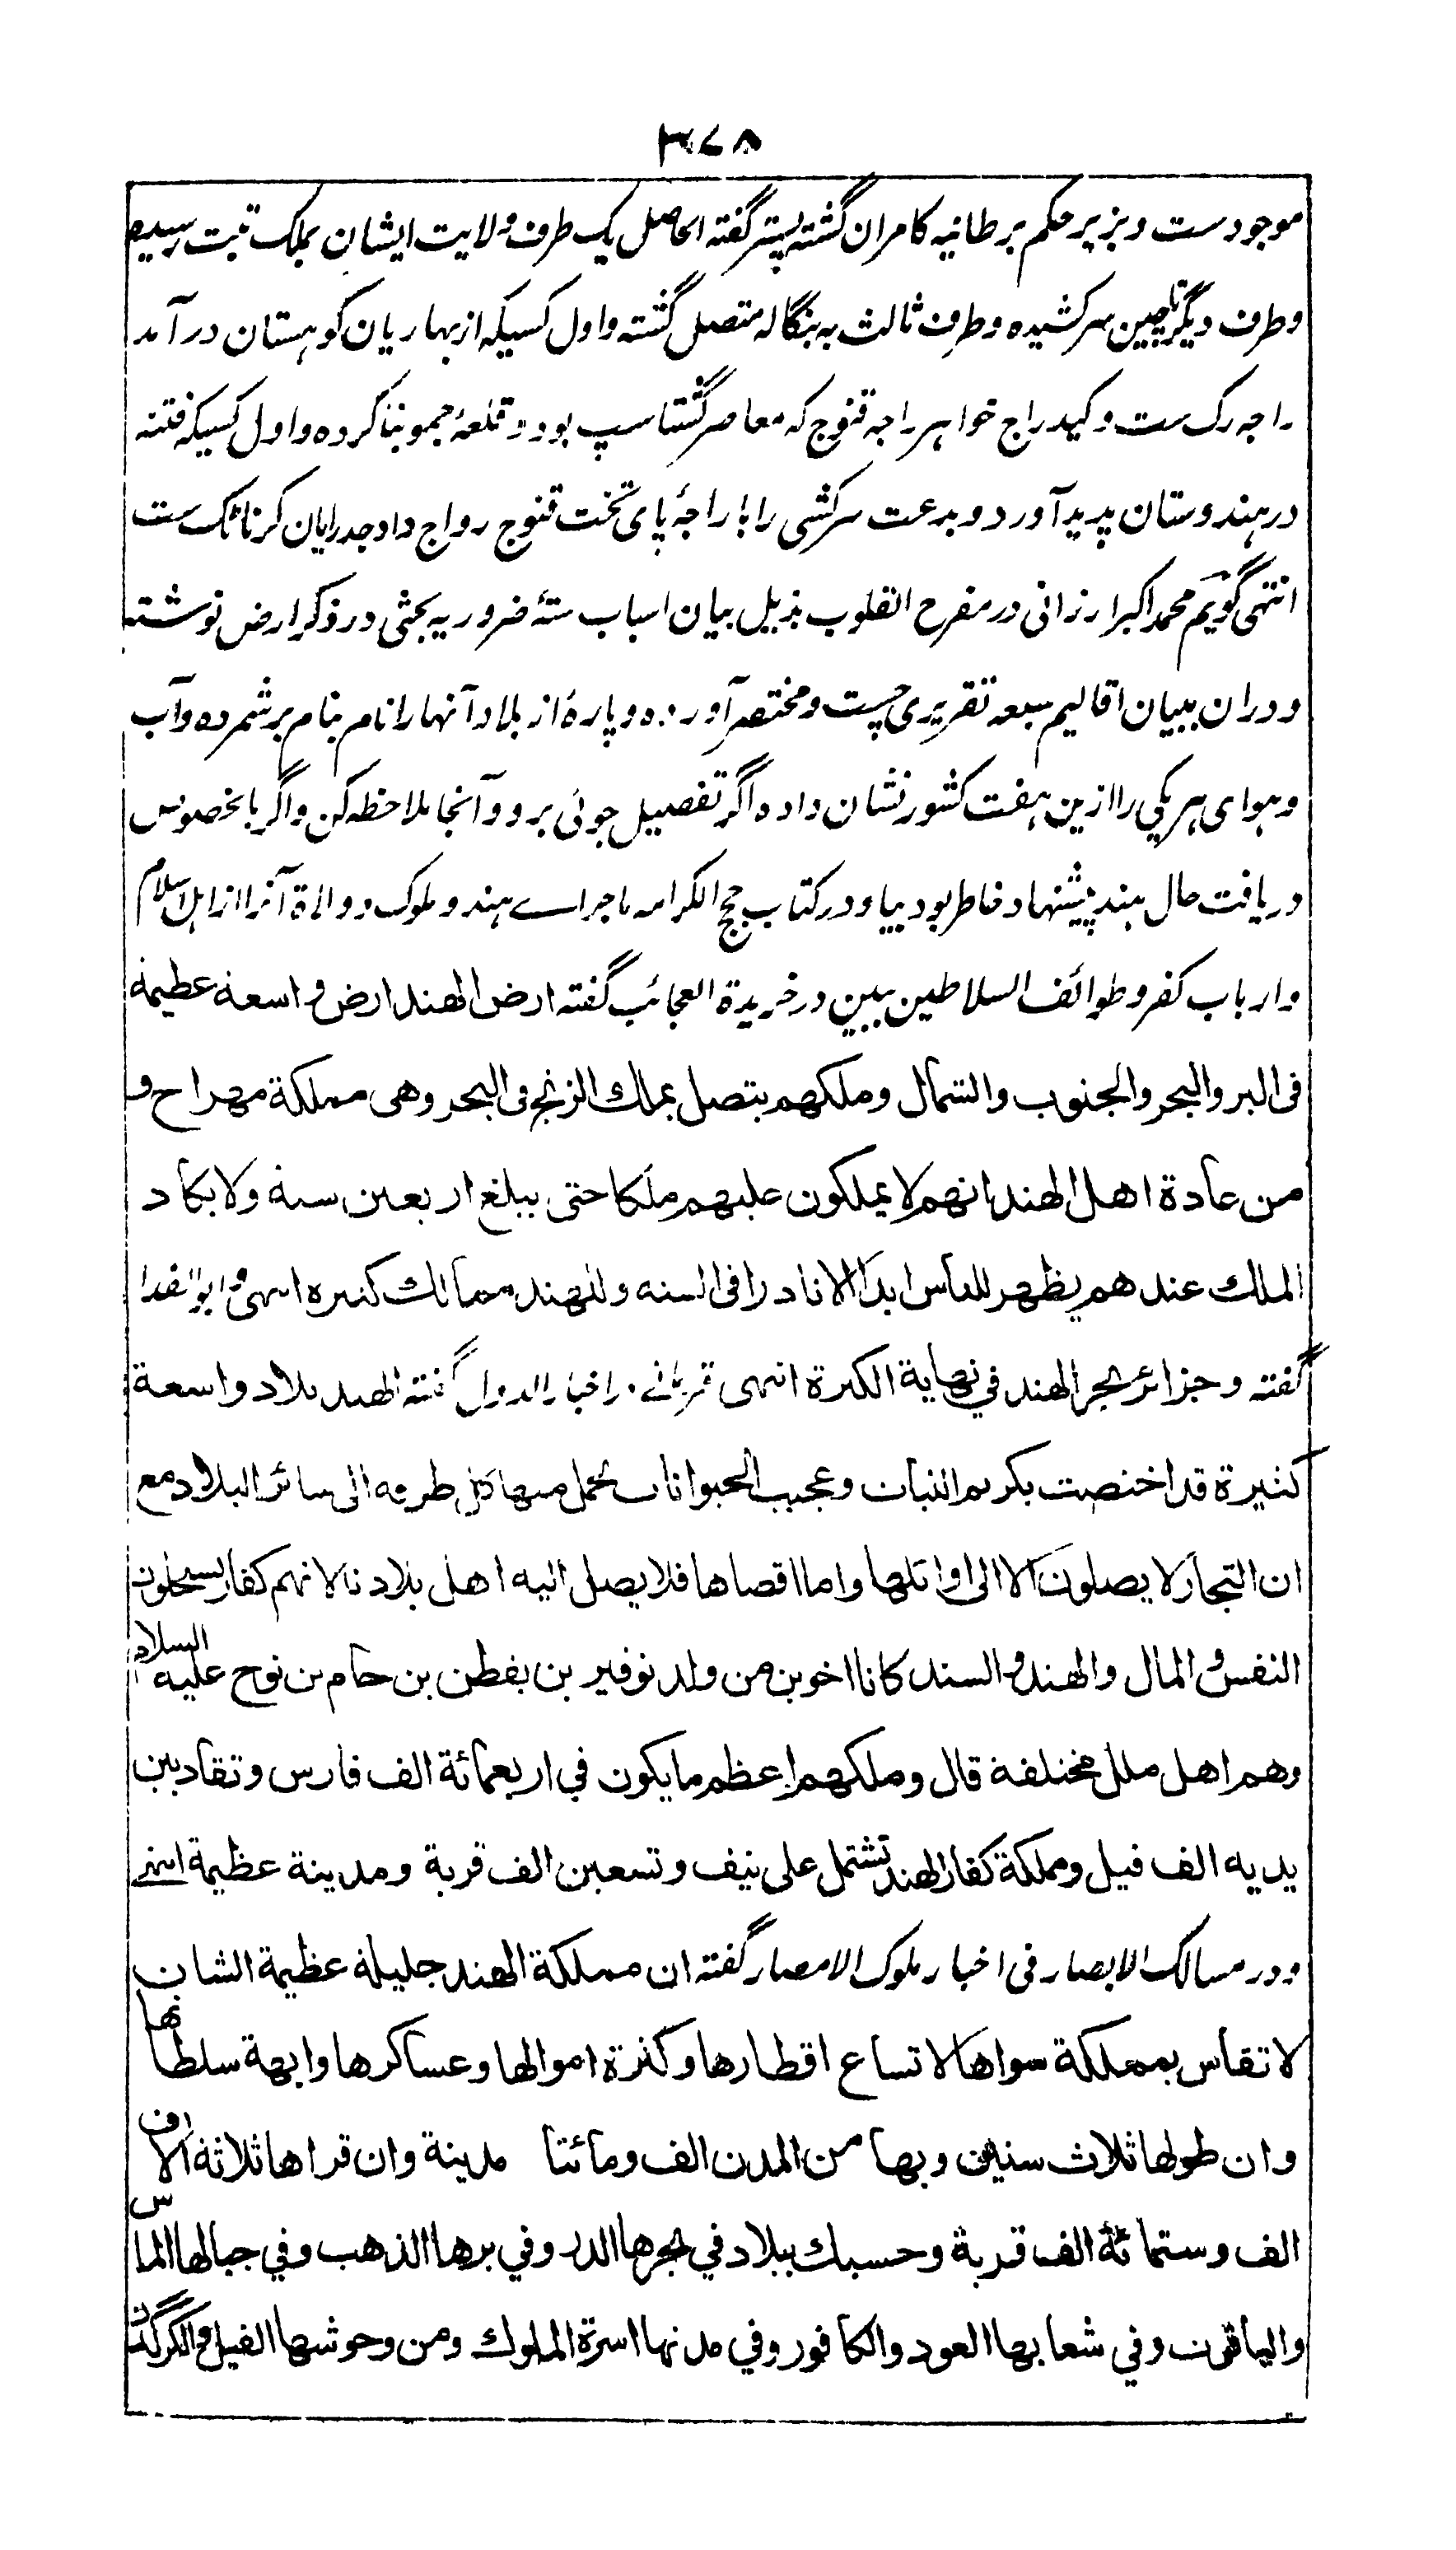 ۳۷۸
موجودست و بزیر حکم برطانیه کامران گشته پستر گفته الحاصل یک طرف ولایت ایشان بملک تبت رسیده
و طرف دیگر بچین سر کشیده و طرف ثالث به بنگاله متصل گشته و اول کسیکه از بهاریان کوهستان درآمد
راجه رک ست و کیدراج خواهر راجه قنوج که معاصر گشتاسپ بود و قلعهٔ جمو بنا کرده و اول کسیکه فتنه
در هندوستان پدید آورد و بدعت سرکشی را با راجهٔ پای تخت قنوج رواج داد جد رایان کرناتک ست
انتهی گویم محمد اکبر ارزانی در مفرح القلوب بذیل بیان اسباب ستهٔ ضروریه بحثی در ذکر ارض نوشته
و دران ببیان اقالیم سبعه تقریری چست و مختصر آورده و پارهٔ از بلاد آنها را نام بنام بر شمرده و آب
و هوای هر یکی را ازین هفت کشور نشان داده اگر تفصیل جوئی برو و آنجا ملاحظه کن و اگر بالخصوص
دریافت حال هند پیشنهاد خاطر بود بیا و در کتاب حجج الکرامه ماجرای هند و ملوک و ولاة آنرا از اهل اسلام
و ارباب کفر و طوائف السلاطین ببین در خریدة العجائب گفته ارض الهند ارض واسعة عظیمة
فی البر والبحر والجنوب والشمال وملکهم یتصل بملک الزنج فی البحر وهی مملکة مهراج و
من عادة اهل الهند انهم لا یملکون علیهم ملکا حتی یبلغ اربعین سنة ولا یکاد
الملک عندهم یظهر للناس ابدا الا نادرا فی السنه وللهند ممالک کثیره انتهی و ابو الفدا
گفته و جزائر بحر الهند فی نهایة الکثرة انتهی قرمانی در اخبار الدول گفته الهند بلاد واسعة
کثیرة قد اختصت بکریم النبات وعجیب الحیوانات یحمل منها کل طرفه الی سائر البلاد مع
ان التجار لا یصلون الا الی اوائلها واما اقصاها فلا یصل الیه اهل بلادنا لانهم کفار یستحلون
النفس والمال والهند والسند کانا اخوین من ولد نوفیر بن یقطن بن حام بن نوح علیه السلام
وهم اهل ملل مختلفة قال وملکهم اعظم ما یکون فی اربعمائة الف فارس وتقاد بین
یدیه الف فیل ومملکة کفار الهند تشتمل علی نیف وتسعین الف قریة ومدینة عظیمة انتهی
و در مسالک الابصار فی اخبار ملوک الامصار گفته ان مملکة الهند جلیلة عظیمة الشان
لا تقاس بمملکة سواها لاتساع اقطارها وکثرة اموالها وعساکرها وابهة سلطانها
وان طولها ثلاث سنین وبها من المدن الف ومائتا مدینة وان قراها ثلاثة الاف
الف وستمائة الف قریة وحسبک ببلاد فی بحرها الدر وفی برها الذهب وفی جبالها الماس
والیاقوت وفی شعابها العود والکافور وفی مدنها اسرة الملوک ومن وحوشها الفیل والکرکدن